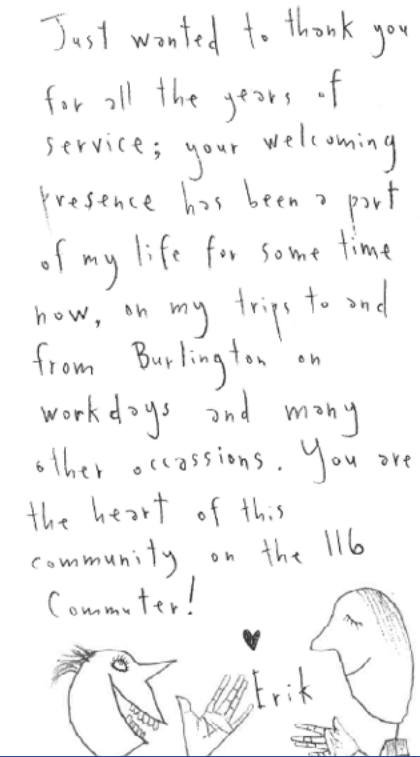 Just wanted to thank you
for all the years of
service; your welcoming
presence has been a part
of my life for some time
now, on my trips to and
from Burlington on
workdays and many
other occassions. You are
the heart of this
community on the 116
Commuter!
Erik